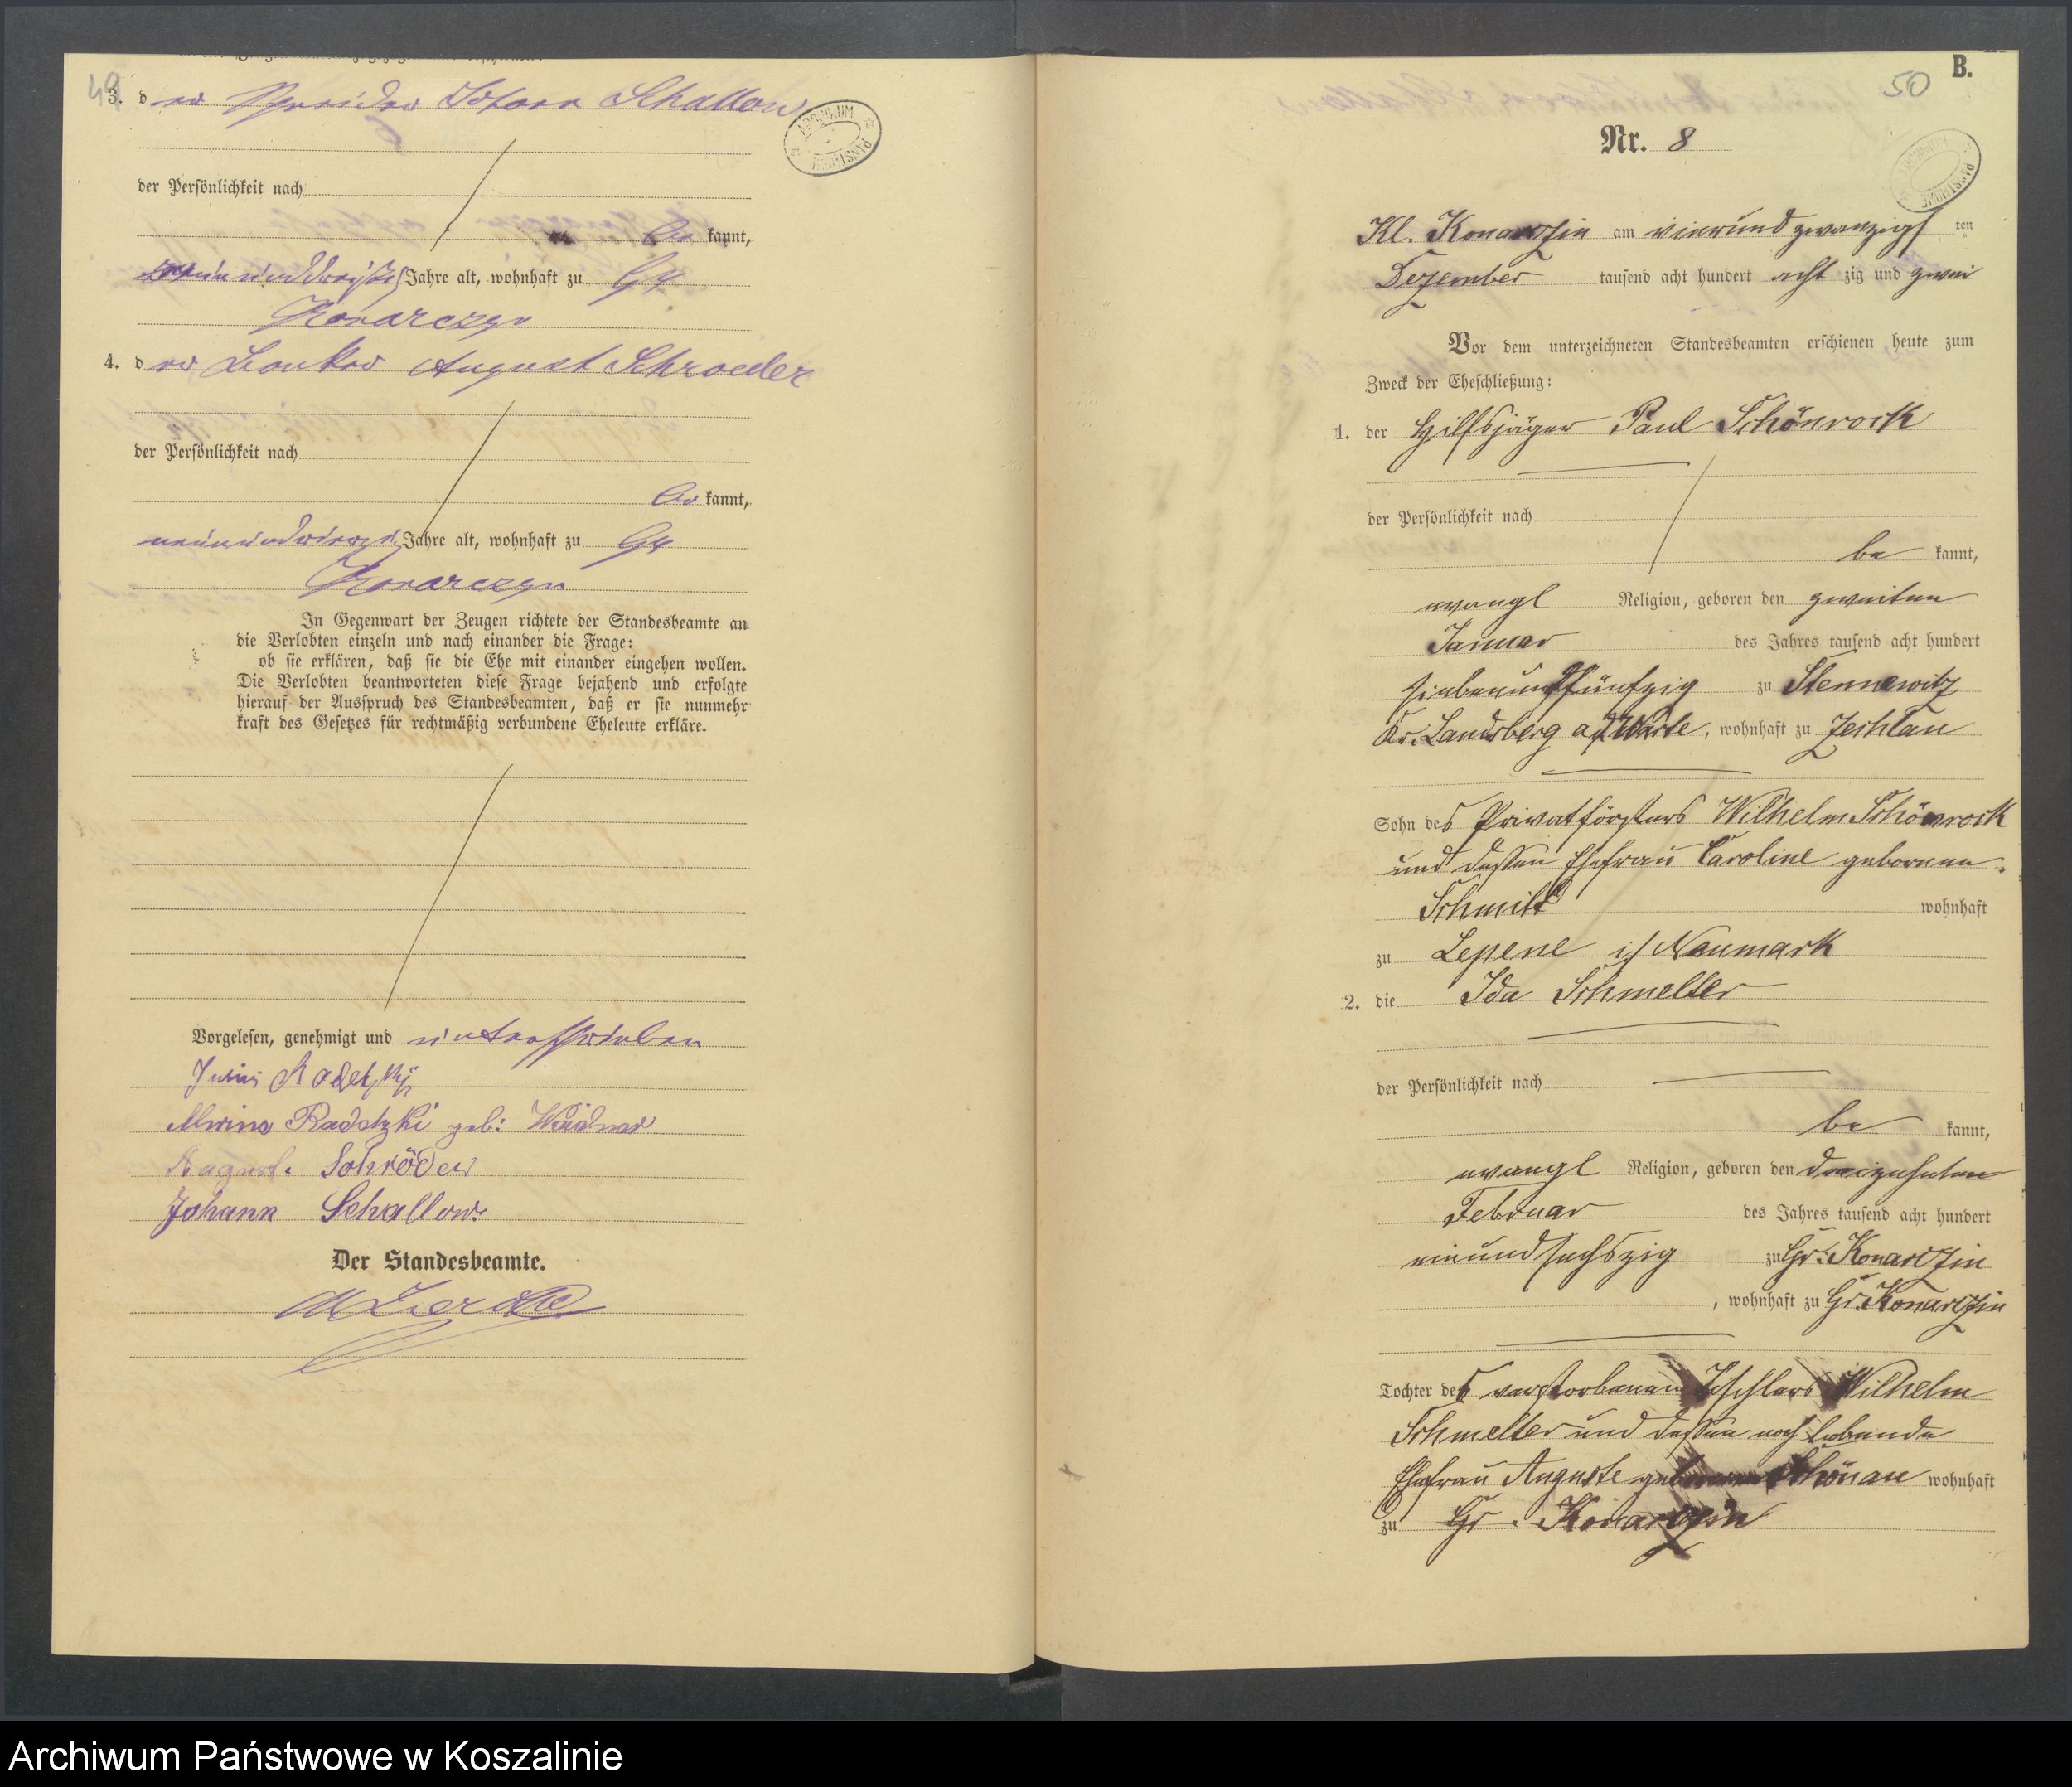 49
3. der Schneider Johann Schallow
der Persönlichkeit nach
be kannt,
Jahre alt, wohnhaft zu Gr
Konarczyn
4. der August Schroeder
der Persönlichkeit nach
be kannt,
neunundvierzig Jahre alt, wohnhaft zu Gr
Konarczyn
In Gegenwart der Zeugen richtete der Standesbeamte an
die Verlobten einzeln und nach einander die Frage:
ob sie erklären, daß sie die Ehe mit einander eingehen wollen.
Die Verlobten beantworteten diese Frage bejahend und erfolgte
hierauf der Ausspruch des Standesbeamten, daß er sie nunmehr
kraft des Gesetzes für rechtmäßig verbundene Eheleute erkläre.
Vorgelesen, genehmigt und unterschrieben
Radetzky
Radetzki geb:
August Schröder
Johann Schallow
Der Standesbeamte.
ARCHIWUM PAŃSTWOWE
50
B.
Nr. 8
Kl. Konarzin am vierundzwanzigs ten
Dezember tausend acht hundert acht zig und zwei
Vor dem unterzeichneten Standesbeamten erschienen heute zum
Zweck der Eheschließung:
1. der Hilfsjäger Paul Schönrock
der Persönlichkeit nach
be kannt,
evangl Religion, geboren den zweiten
Januar des Jahres tausend acht hundert
siebenundfünfzig zu Stennewitz
Kr. Landsberg a/Warte, wohnhaft zu Zechlau
Sohn des Privatförsters Wilhelm Schönrock
und dessen Ehefrau Caroline geborenen
Schmidt wohnhaft
zu Lepene i/ Neumark
2. die Ida Schmelter
der Persönlichkeit nach
be kannt,
evangl Religion, geboren den dreizehnten
Februar des Jahres tausend acht hundert
einundsechszig zu Gr. Konarczin
, wohnhaft zu Gr. Konarczin
Tochter des verstorbenen Tischlers Wilhelm
Schmelter und dessen noch lebende
Ehefrau Auguste geborenen Schönau wohnhaft
zu Gr. Konarczin
Archiwum Państwowe w Koszalinie